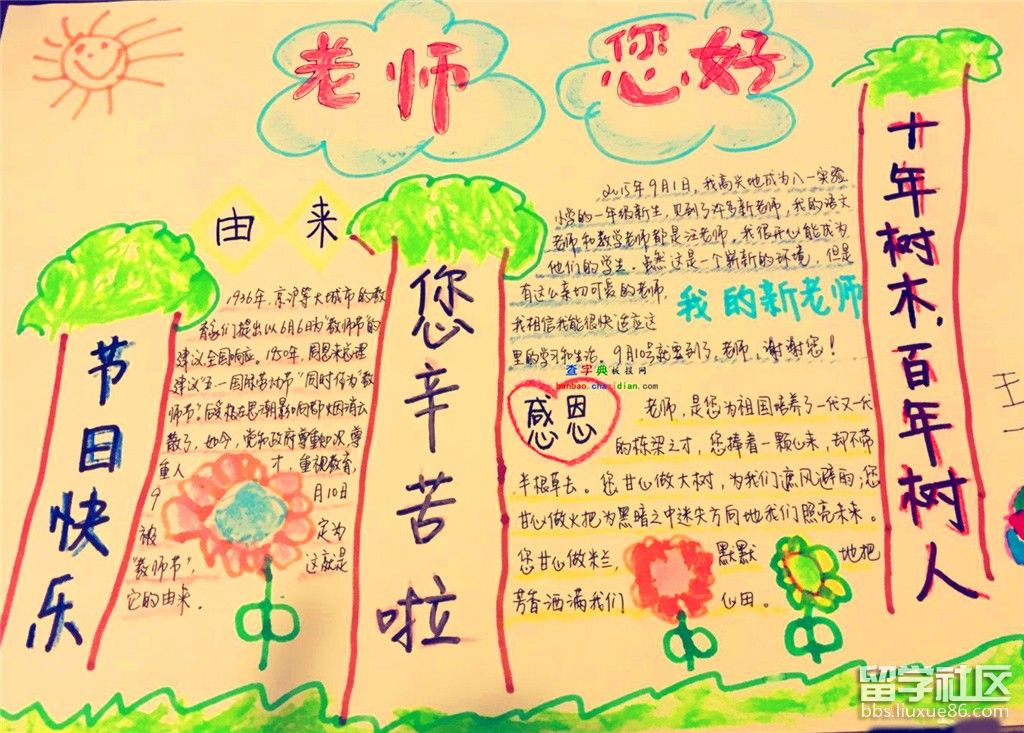 老师 您好
由来
节日快乐
1936年,京沪等大城市的教
育家们提出以6月6日为"教师节"的
建议,全国响应。1950年,周恩来总理
建议"五一国际劳动节"同时作为"教
师节"。
散了,如今,党和政府尊重知识,尊
重人才,重视教育,
9月10日
被定为
"教师节",这就是
它的由来。
您辛苦啦
2015年9月1日,我高兴地成为八一实验
小学的一年级新生,见到了许多新老师,我的语文
老师和数学老师都是汪老师。我很开心能成为
他们的学生。虽然这是一个崭新的环境,但是
有这么亲切可爱的老师,
我的新老师
我相信我能很快适应这
里的学习和生活。9月10号就要到了,老师,谢谢您!
查字典板报网
banbao.chazidian.com
感恩
老师,是您为祖国培养了一代又一代
的栋梁之才,您捧着一颗心来,却不带
半根草去。您甘心做大树,为我们遮风避雨;您
甘心做火把为黑暗之中迷失方向地我们照亮未来。
您甘心做米兰,默默地把
芳香洒满我们心田。
十年树木,百年树人
留学社区
bbs.liuxue86.com